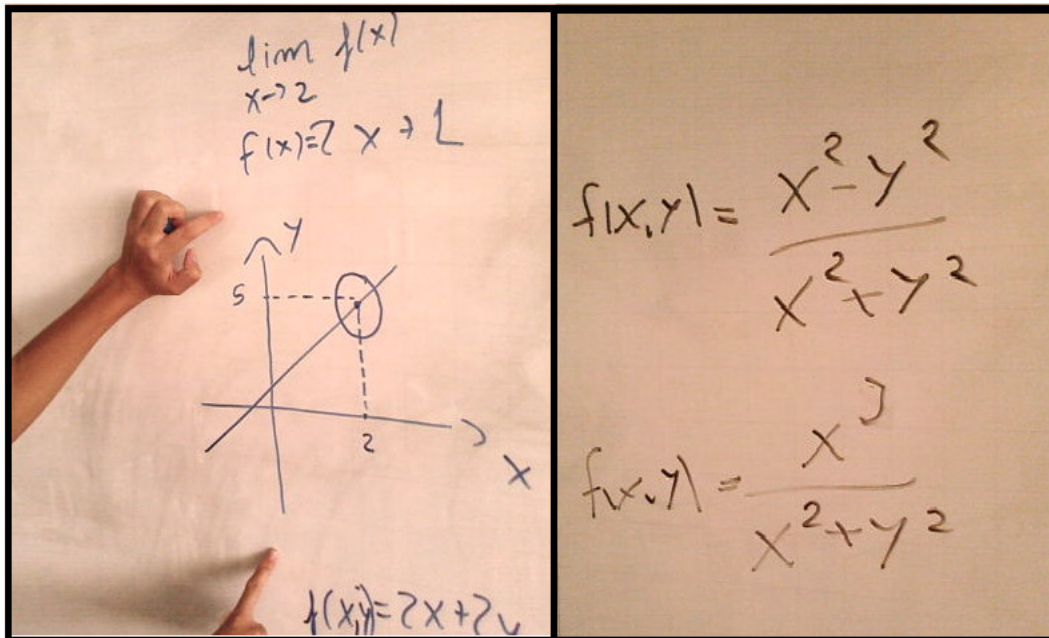 lim f(x)
x→2
f(x)=2x+1
y
5
2
x
f(x,y)=2x+2y
f(x,y)=
x²-y²
x²+y²
f(x,y)=
x³
x²+y²